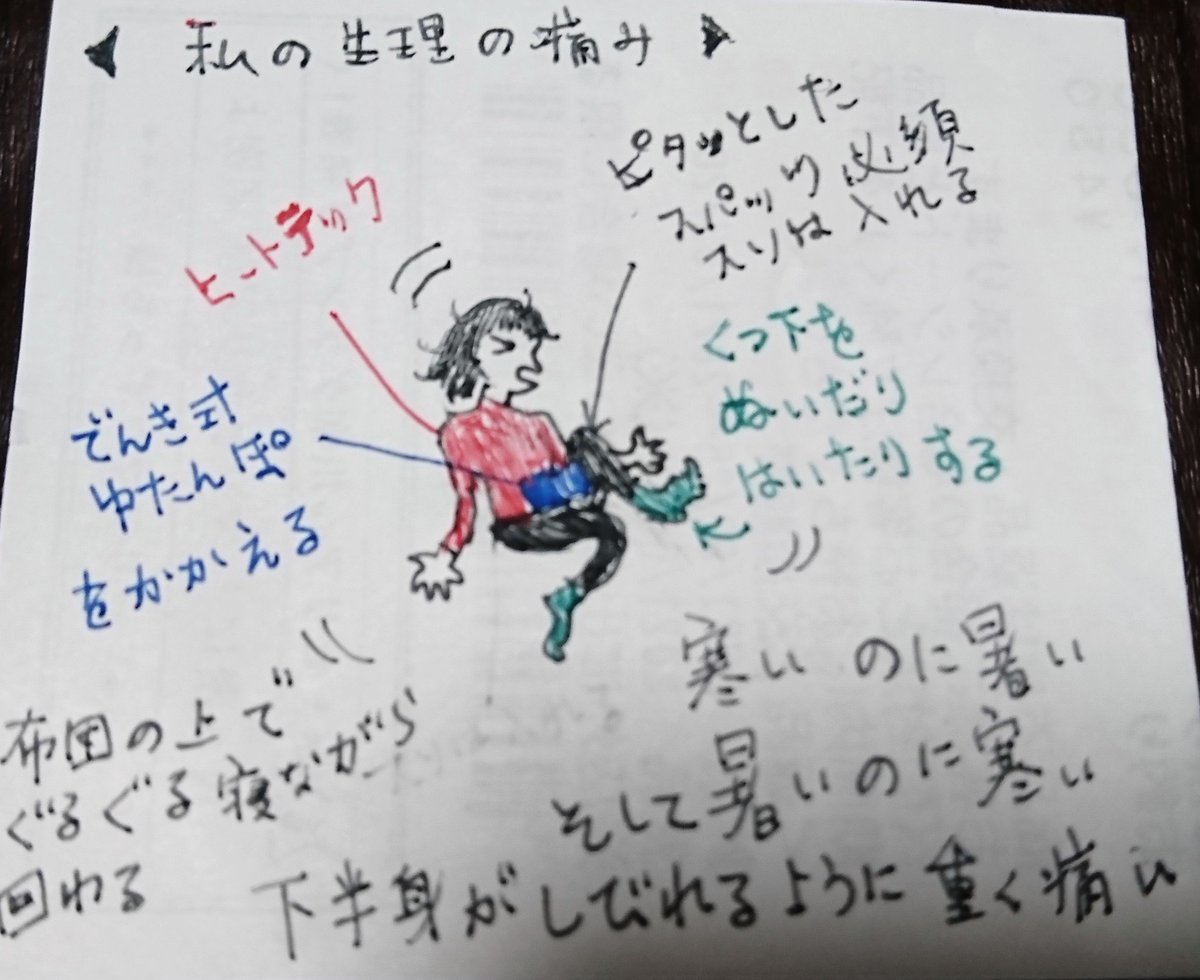 私の生理の痛み
ピタッとした
スパッツ必須
スソは入れる
ヒートテック
くつ下を
ぬいだり
はいたりする
でんき式
ゆたんぽ
をかかえる
寒いのに暑い
そして暑いのに寒い
布団の上で
ぐるぐる寝ながら
回わる
下半身がしびれるように重く痛い